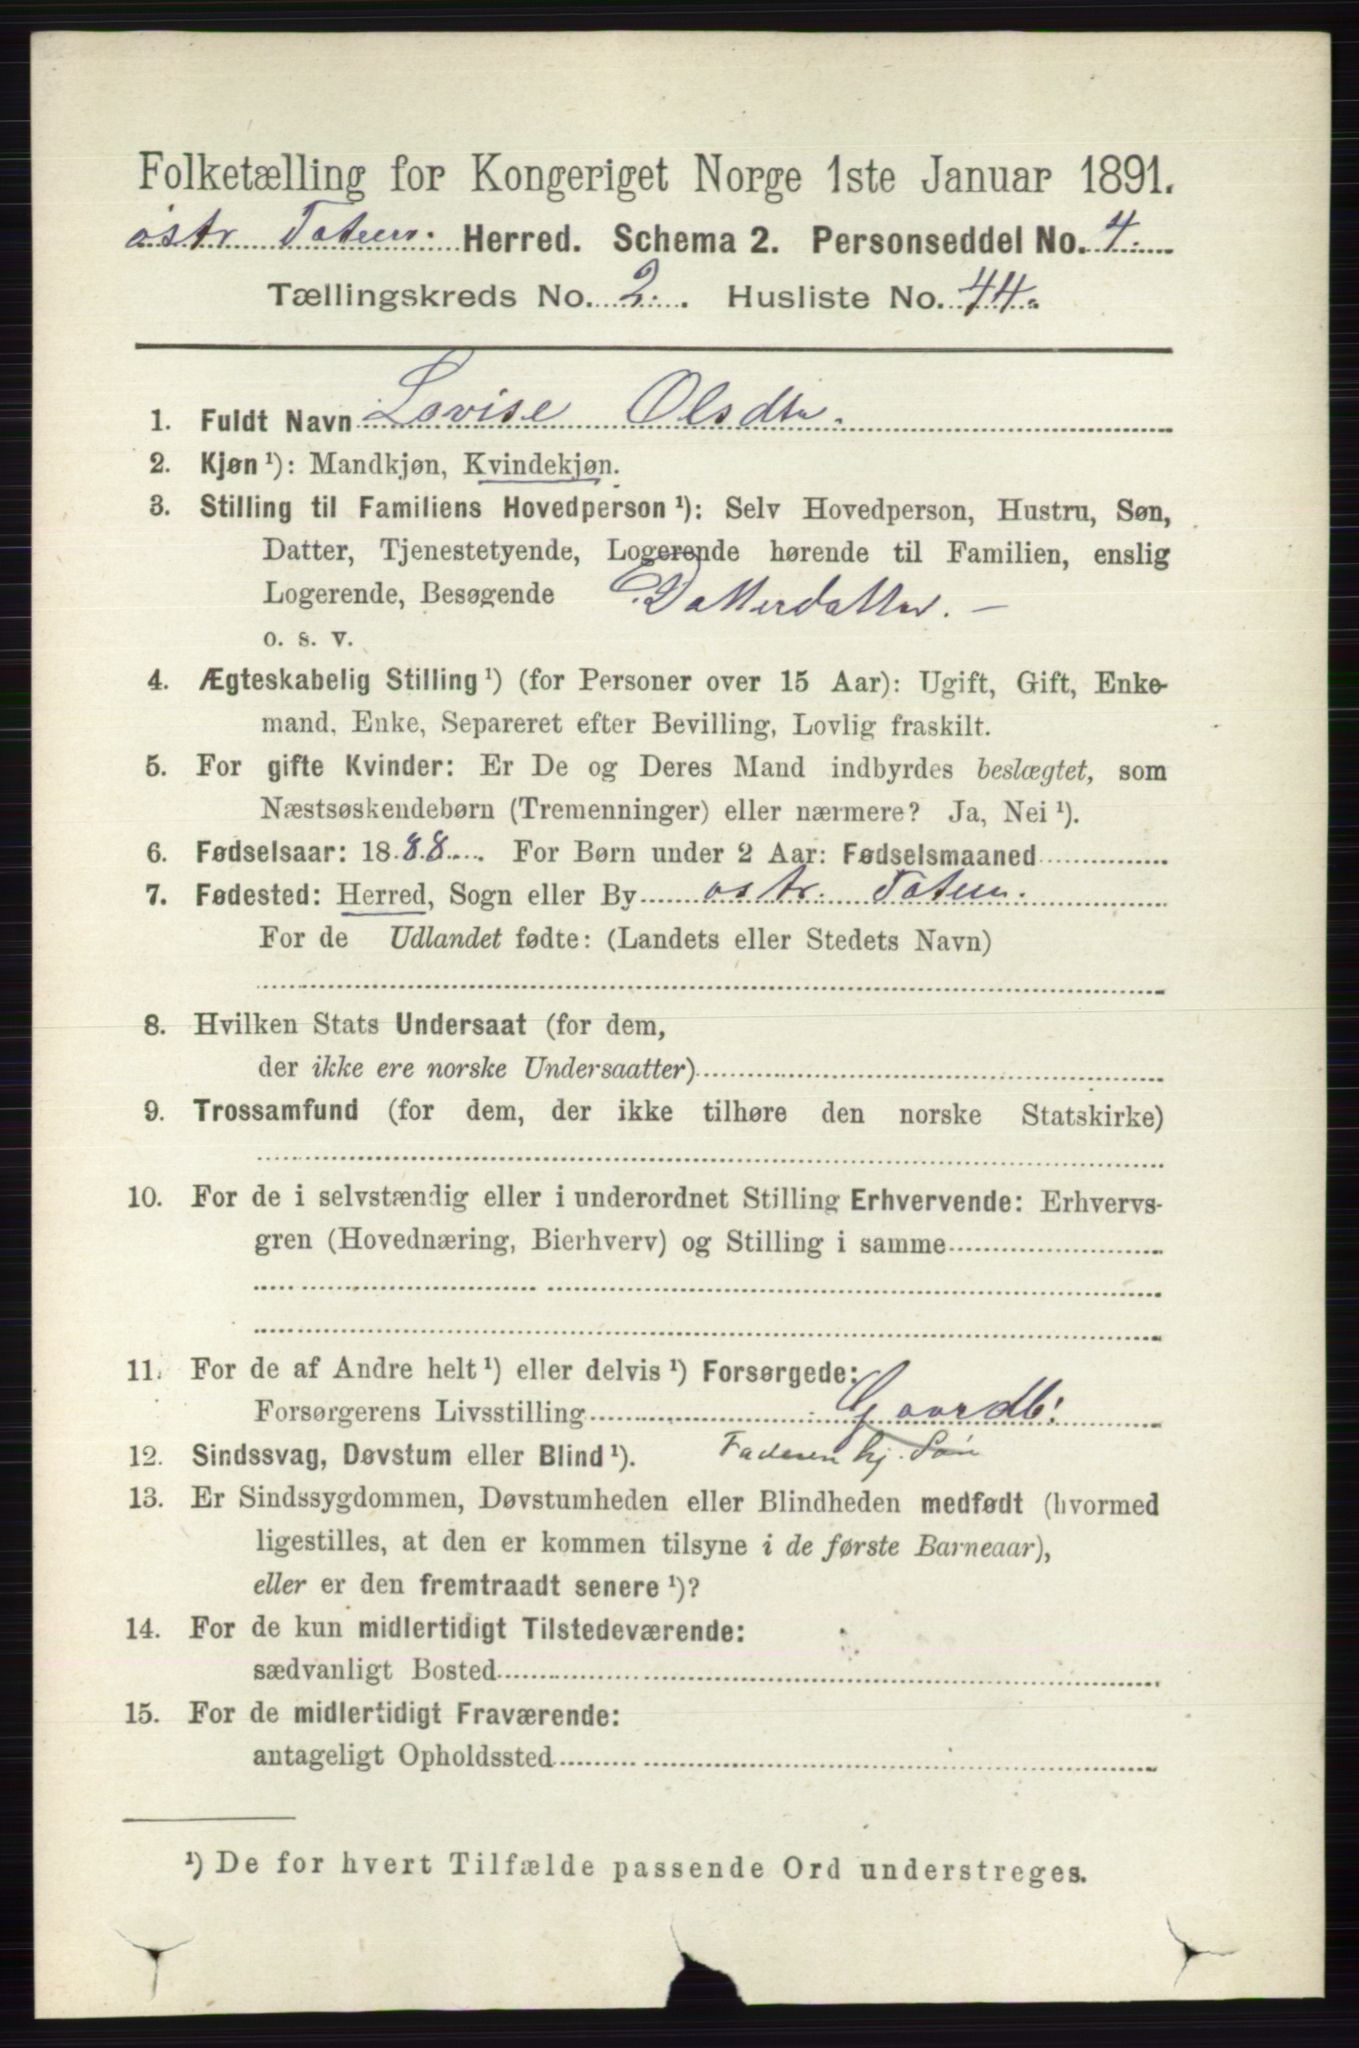 Folketælling for Kongeriget Norge 1ste Januar 1891.
østr Toten. Herred. Schema 2. Personseddel No. 4.
Tællingskreds No. 2. Husliste No. 44.
1. Fuldt Navn Lovise Olsdtr.
2. Kjøn ¹): Mandkjøn, Kvindekjøn.
3. Stilling til Familiens Hovedperson ¹): Selv Hovedperson, Hustru, Søn,
Datter, Tjenestetyende, Logerende hørende til Familien, enslig
Logerende, Besøgende Datterdatter. —
o. s. v.
4. Ægteskabelig Stilling ¹) (for Personer over 15 Aar): Ugift, Gift, Enke-
mand, Enke, Separeret efter Bevilling, Lovlig fraskilt.
5. For gifte Kvinder: Er De og Deres Mand indbyrdes beslægtet, som
Næstsøskendebørn (Tremenninger) eller nærmere? Ja, Nei ¹).
6. Fødselsaar: 1888. For Børn under 2 Aar: Fødselsmaaned
7. Fødested: Herred, Sogn eller By østr. Toten.
For de Udlandet fødte: (Landets eller Stedets Navn)
8. Hvilken Stats Undersaat (for dem,
der ikke ere norske Undersaatter)
9. Trossamfund (for dem, der ikke tilhøre den norske Statskirke)
10. For de i selvstændig eller i underordnet Stilling Erhvervende: Erhvervs-
gren (Hovednæring, Bierhverv) og Stilling i samme
11. For de af Andre helt ¹) eller delvis ¹) Forsørgede:
Forsørgerens Livsstilling Gaardb:
12. Sindssvag, Døvstum eller Blind ¹). Faderen hj. Søn
13. Er Sindssygdommen, Døvstumheden eller Blindheden medfødt (hvormed
ligestilles, at den er kommen tilsyne i de første Barneaar),
eller er den fremtraadt senere ¹)?
14. For de kun midlertidigt Tilstedeværende:
sædvanligt Bosted
15. For de midlertidigt Fraværende:
antageligt Opholdssted
¹) De for hvert Tilfælde passende Ord understreges.